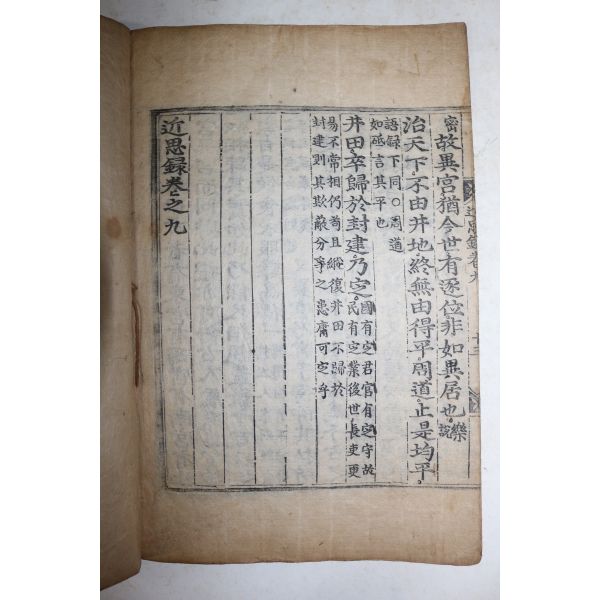 近思錄卷九
密故異宮猶今世有逐位非如異居也樂說
治天下不由井地終無由得平周道止是均平
語錄下同○周道
如砥言其平也
井田卒歸於封建乃定
國有定君官有定守故
民有定業後世長吏更
易不常相仍苟且縱復井田不歸於
封建則其欺蔽分爭之患庸可定乎
近思錄卷之九